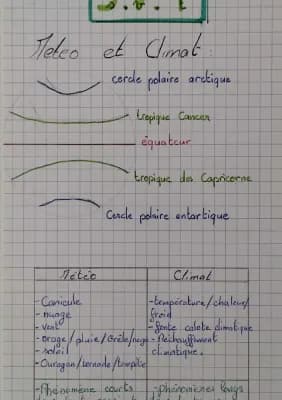 S.V.T
Méteo et Climat :
cercle polaire arctique
tropique Cancer
équateur
tropique des Capricorne
Cercle polaire antartique
Météo
Climat
- Canicule
- nuage
- vent
- orage / pluie / Grêle / neige
- soleil
- Ouragan / tornade / tempête
- Phénomène courts
- température / chaleur /
froid
- fonte calote climatique
- Réchauffement
climatique.
- phénomènes longs